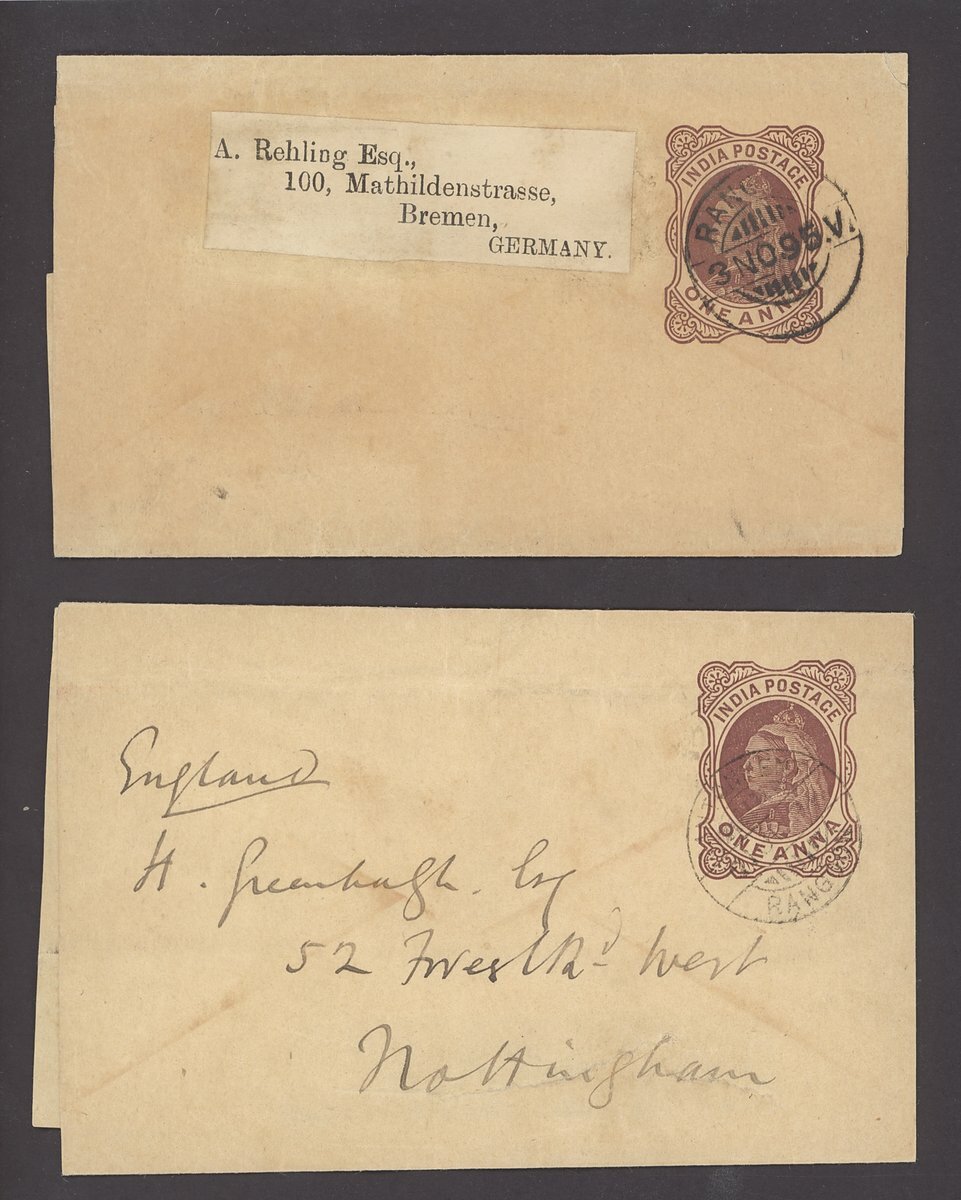 A. Rehling Esq.,
100, Mathildenstrasse,
Bremen,
GERMANY.
INDIA POSTAGE
ONE ANNA
RANG
3 NO 95.V.
INDIA POSTAGE
ONE ANNA
RANG
England
H. Greenhalgh. Esq
52 Forest Rd West
Nottingham